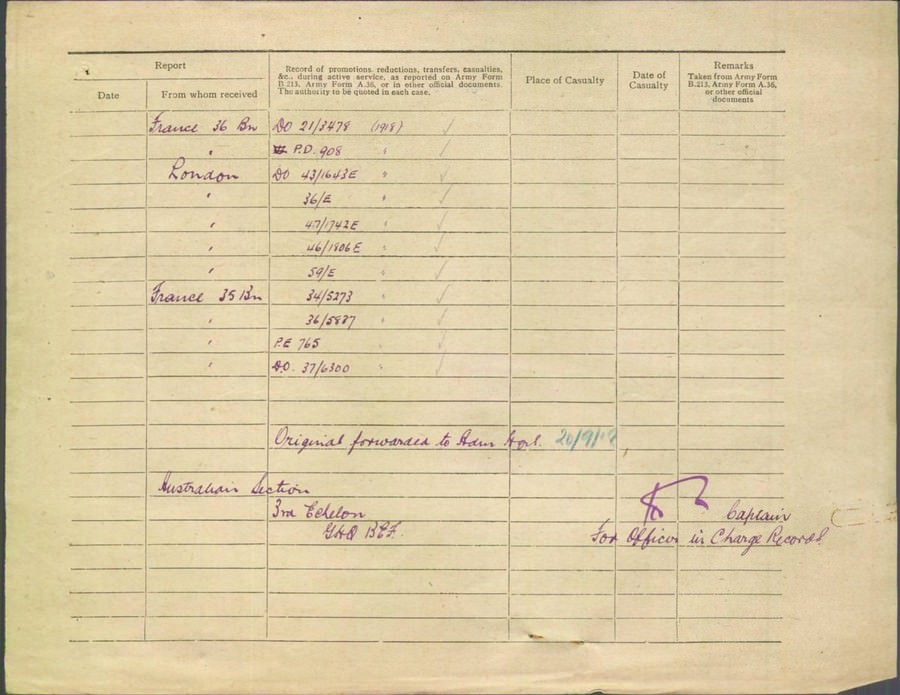 Report
Date
From whom received
Record of promotions, reductions, transfers, casualties,
&c., during active service, as reported on Army Form
B.213, Army Form A.36, or in other official documents.
The authority to be quoted in each case.
Place of Casualty
Date of
Casualty
Remarks
Taken from Army Form
B.213, Army Form A.36,
or other official
documents
France 36 Bn DO 21/3478 (1918) ✓
" P.D. 908 " ✓
London DO 43/1643E " ✓
" 36/E " ✓
" 47/1742E " ✓
" 46/1806E " ✓
" 59/E " ✓
France 35 Bn 34/5273 " ✓
" 36/5887 " ✓
" P.E 765 " ✓
" D.O. 37/6300 " ✓
Original forwarded to Adm Hqrs. 20/9/18
Australian Section
3rd Echelon
GHQ BEF.
Captain
For Officer in Charge Records